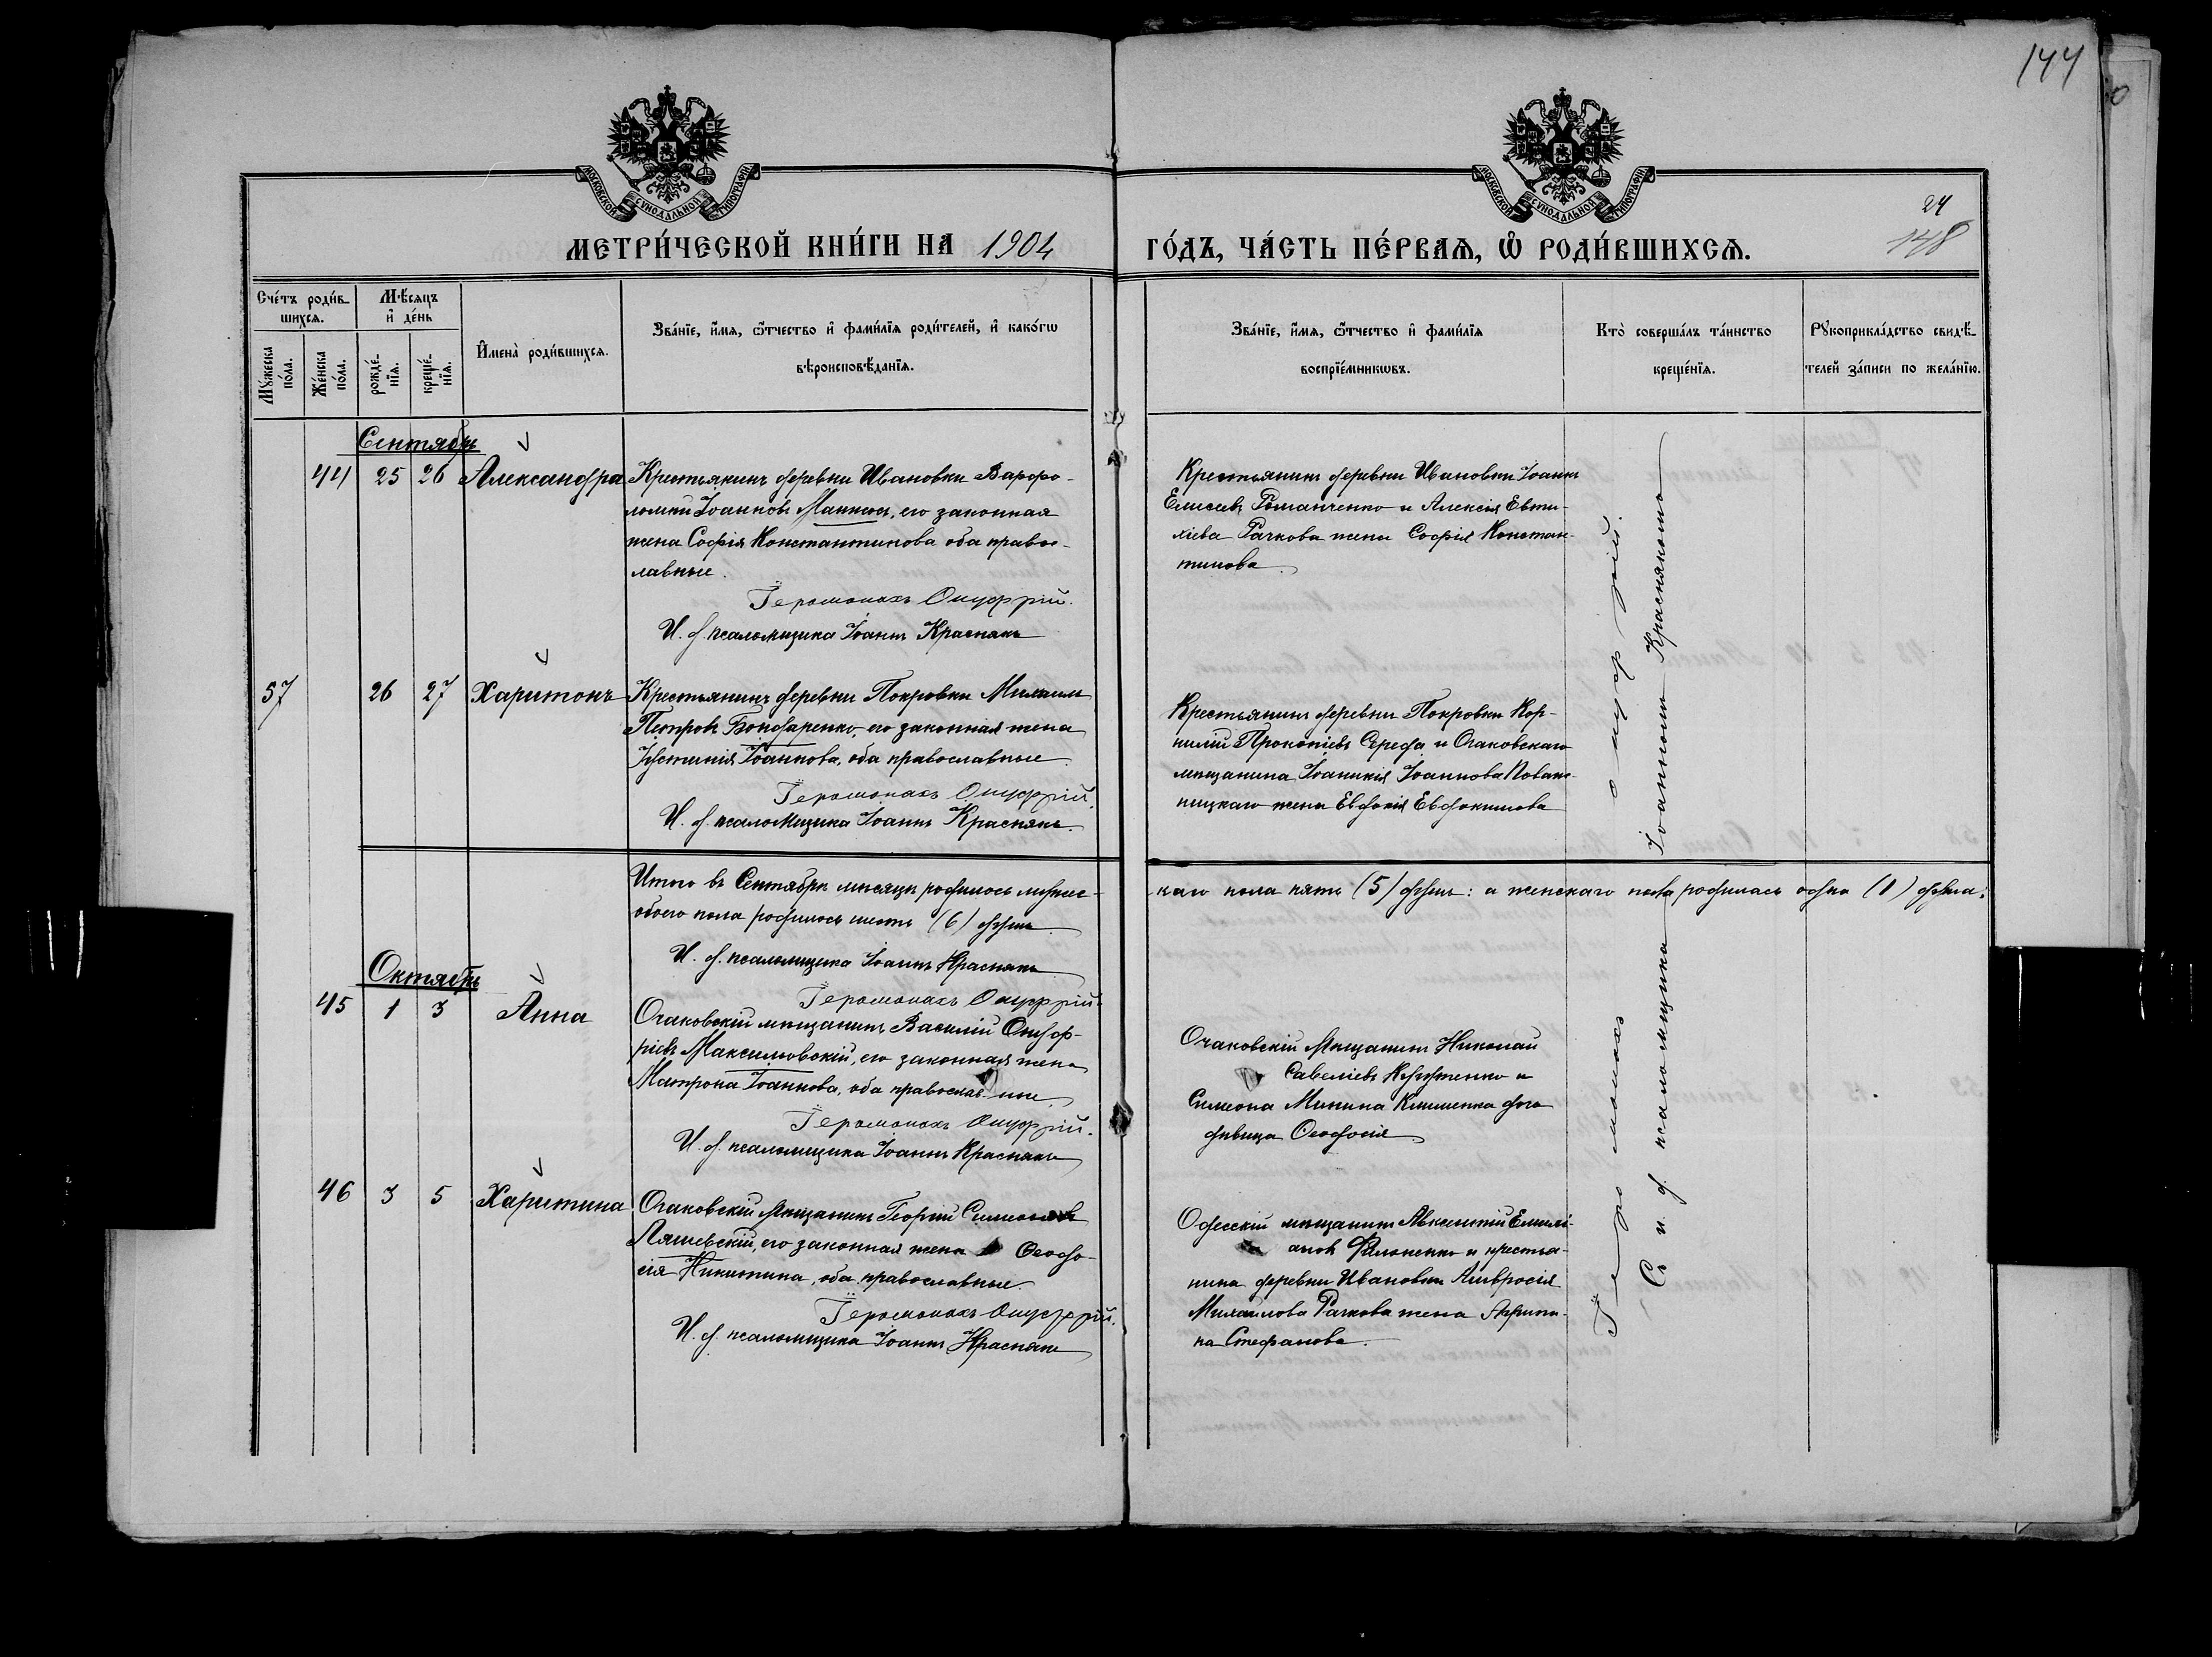 144
МОСКОВСКОЙ СѴНОДАЛЬНОЙ ТИПОГРАФІИ
МОСКОВСКОЙ СѴНОДАЛЬНОЙ ТИПОГРАФІИ
24
148
МЕТРИ́ЧЕСКОЙ КНИ́ГИ НА 1904 ГО́ДЪ, ЧА́СТЬ ПЕ́РВАѦ, Ѡ҆ РОДИ́ВШИХСѦ.
Сче́тъ роди́в-
шихсѧ.
Мꙋ́жеска по́ла.
Же́нска по́ла.
Мѣ́сѧцъ
и҆ де́нь
рожде́-
нїѧ.
креще́-
нїѧ.
И҆мена̀ роди́вшихсѧ.
Зва́нїе, и҆́мѧ, ѻ҆́тчество и҆ фами́лїѧ роди́телей, и҆ како́гѡ
вѣроисповѣ́данїѧ.
Зва́нїе, и҆́мѧ, ѻ҆́тчество и҆ фами́лїѧ
воспрїе́мникѡвъ.
Кто̀ соверша́лъ та́инство
креще́нїѧ.
Рꙋкоприкла́дство свидѣ́-
телей за́писи по жела́нїю.
Сентябрь
44 25 26 Александра
Крестьянинъ деревни Ивановки Варфо-
ломей Іоанновъ Манжос, его законная
жена Софія Константинова оба право-
славные.
Іеромонахъ Онуфрій.
И. д. псаломщика Іоаннъ Краснякъ
Крестьянинъ деревни Ивановки Іоаннъ
Елисеевъ Романченко и Алексія Евти-
хіева Рачкова жена Софія Констан-
тинова
57 26 27 Харитонъ
Крестьянинъ деревни Покровки Михаилъ
Петровъ Бондаренко, его законная жена
Іустинія Іоаннова, оба православные
Іеромонахъ Онуфрій.
И. д. псаломщика Іоаннъ Краснякъ.
Крестьянинъ деревни Покровки Кор-
нилій Прокопіевъ Середа и Очаковскаго
мещанина Іоаникія Іоаннова
ницкаго жена Евдокія Евдокимова
Итого въ Сентябрѣ месяцѣ родилось мужес-
каго пола пять (5) душъ: а женскаго пола родилась одна (1) душа:
обоего пола родилось шесть (6) душъ
И. д. псаломщика Іоаннъ Краснякъ
Іеромонахъ Онуфрій.
Октябрь
45 1 3 Анна
Очаковскій мещанинъ Василій Онуф-
ріевъ Максимовскій, его законная жена
Матрона Іоаннова, оба православ-ные
Іеромонахъ Онуфрій.
И. д. псаломщика Іоаннъ Краснякъ
Очаковскій мещанинъ Николай
Савеліевъ и
Симеона Минина Клименка доч
девица Феодосія
46 3 5 Харитина
Очаковскій мещанинъ Георгій Симеоновъ
Ляшевскій, его законная жена Феодо-
сія Никитина, оба православные
Іеромонахъ Онуфрій.
И. д. псаломщика Іоаннъ Краснякъ
Одесскій мещанинъ Авксентій Емилі-
ановъ Филоненко и крестья-
нина деревни Ивановки Амвросія
Михайлова Рачкова жена Агрипи-
на Стефанова.
Іеромонахъ Онуфрій.
Съ и. д. псаломщика Іоанномъ Краснякомъ